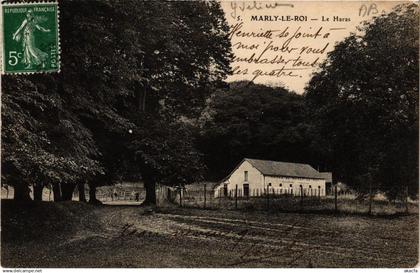 REPUBLIQUE FRANÇAISE
5c
POSTES
5. MARLY-LE-ROI — Le Haras
Henriette se joint à
moi pour vous
embrasser tous
les quatre